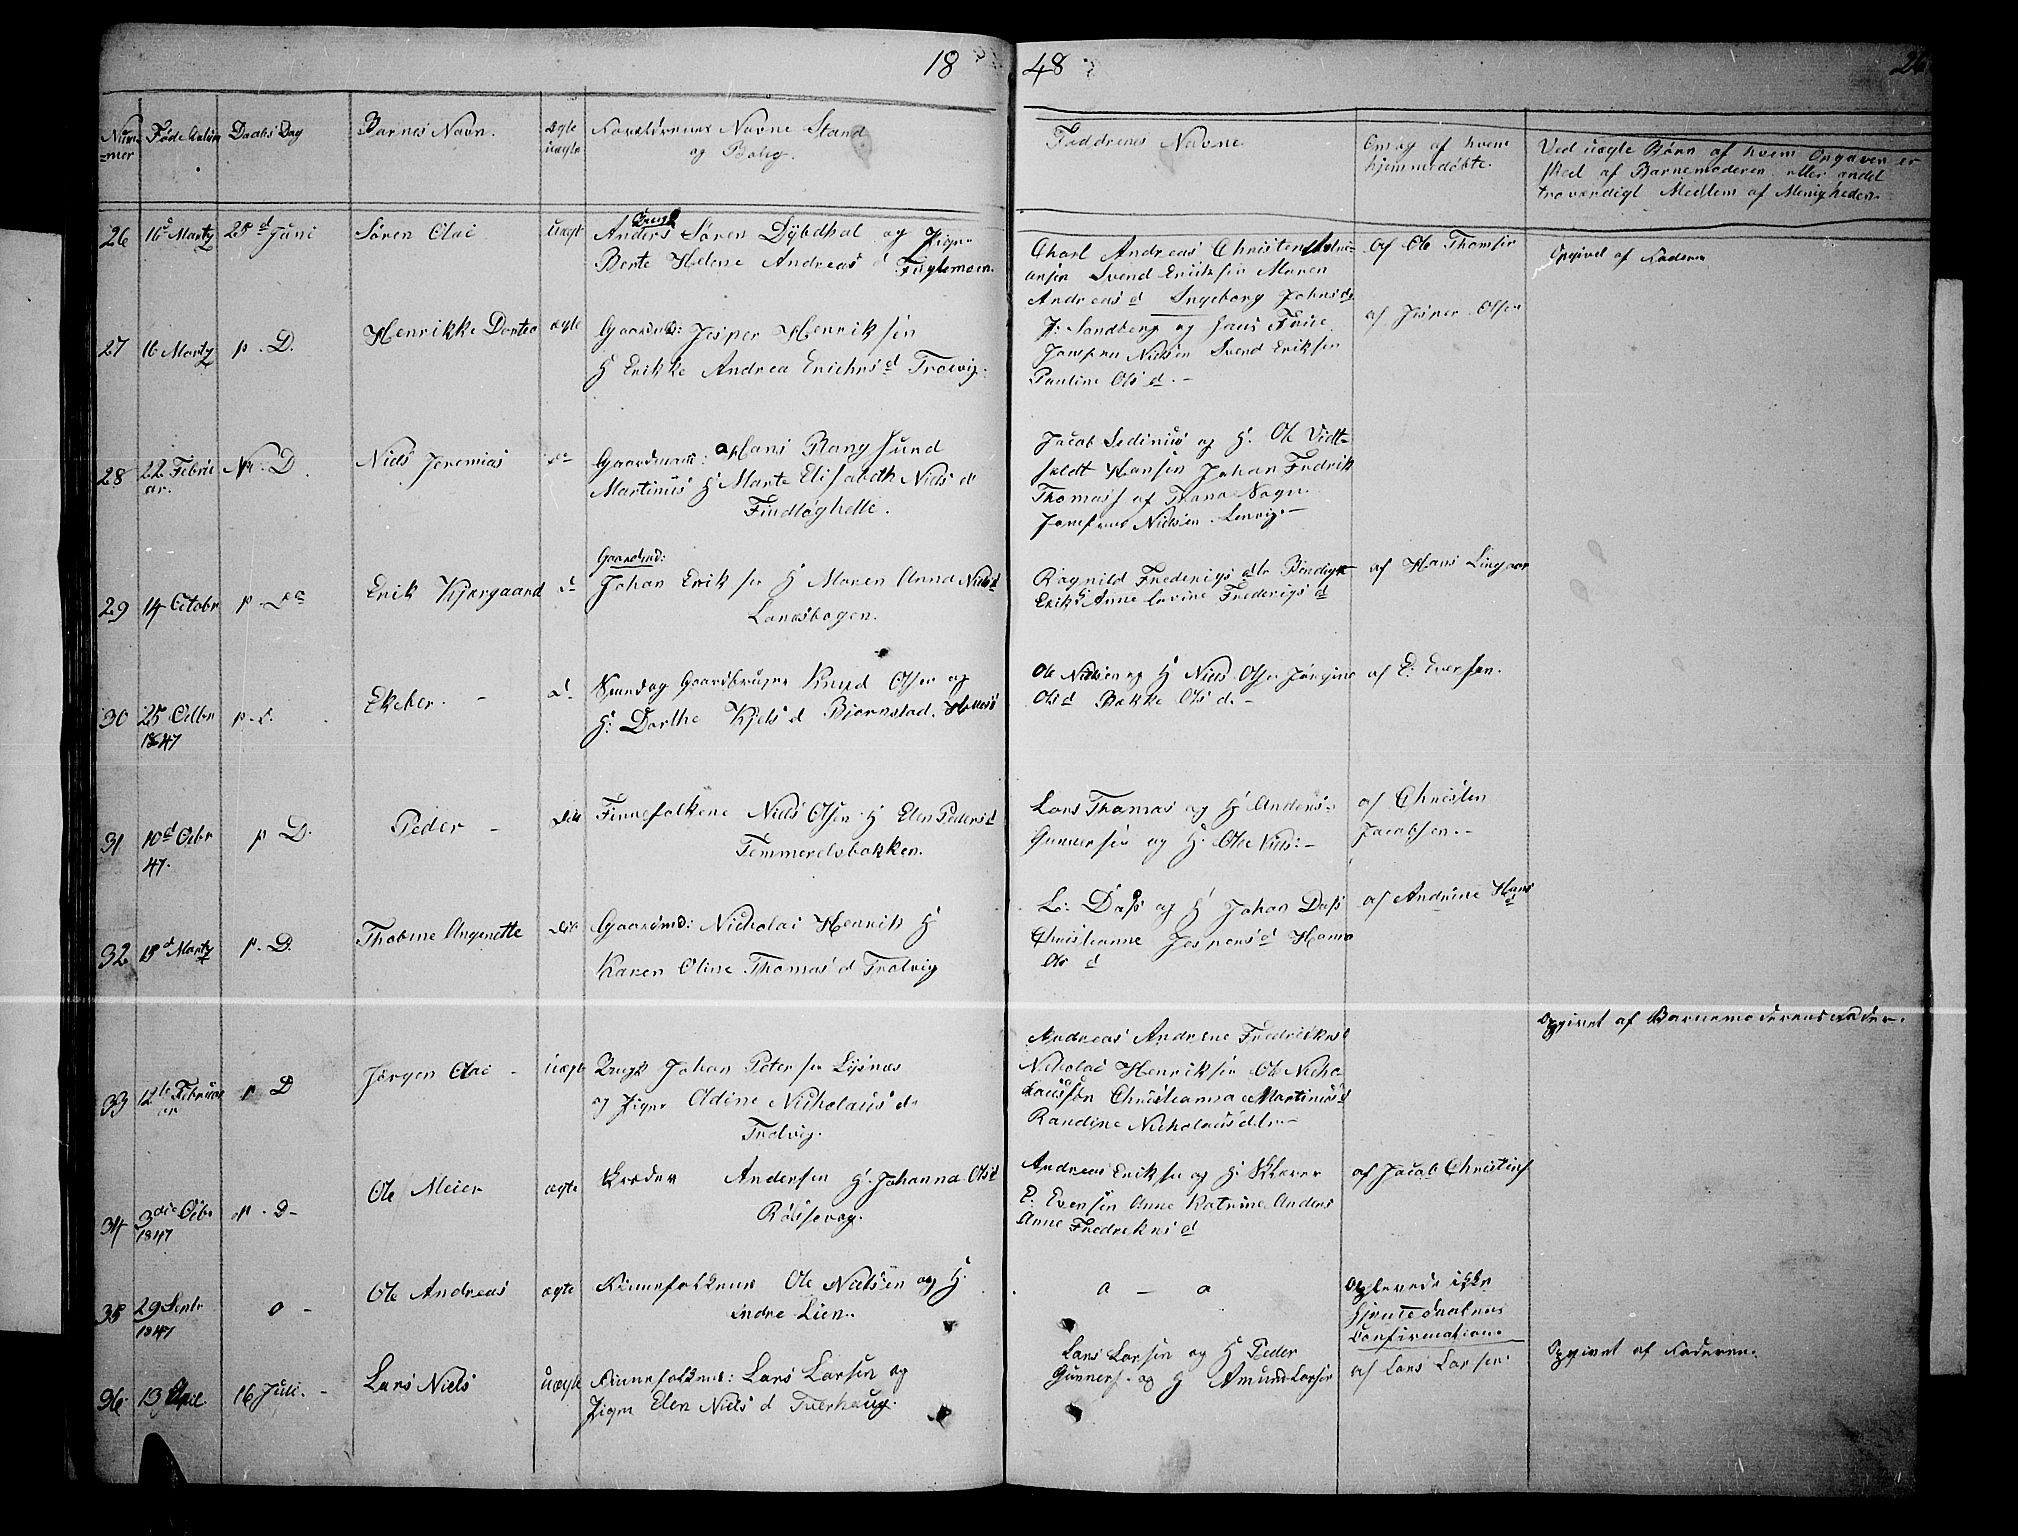 18 48
26
Num-
-mer
Føde Datum
Daabs Dag
Barnes Navn.
Ægte
uægte
Forældrenes Navne Stand
og Bolig.
Faddrenes Navne
Om og af hvem
hjemmedøbte.
Ved uægte Børn af hvem Opgaven er
sked af Barnemoderen eller andet
troværdigt Medlem af Menigheden.
26 16 Martz 25d Juni Søren Olai uægt Anders Søren Dybdhal og Pigen
Berte Helene Andreas d Fuglemoen.
Charl Andreas Christen
Svend Eriksen Maren
Andreas d Ingeborg Johns d
af Ole Thomsen
Opgivet af Faderen
27 16 Martz p. D. Henrikke Dortea ægte Gaardmd: Jesper Henriksen
H Erikke Andrea Erichs d Trolvig.
J: Sandberg og hans Frue
Jomfru Nielsen Svend Eriksen
Pauline Ols d. -
af Jesper Olsen
28 22 Febru
ar. D. Niels Jeremias do Gaardmand: Hans Rangsund
Martinus H Marte Elisabeth Niels d
Findløghelle.
Jacob Sedinius og H. Ole Vidt-
feldt Hansen Johan Fredrik
Thomass af Trana Sogn.
Jomfrue Nielsen Lenvig. -
29 14 Octobr p. Do Erik Kjærgaard d
Gaardmd:
Johan Eriksen H Maren Anna Niels d
Lanesbogen.
Ragnild Frederigs dtr
Eriks Anne Lovine Frederigs d
af Hans
30 25 Octbr
1847 p. d. Ekeber. - d. Gaardbruger Knud Olsen og
H: Dorthe Kjels d Bjørnstad.
Ole Nielsen og H Niels Olsen Jørgine
Ols d Bakke Ols d. -
af E: Eversen.
31 10d Octbr
47. p D. Peder - Finnefolkene Niels Olsen H Elen Peders d
Temmerelvbakken.
Lars Thomas og H Anders
Gunnersen og H. Ole Niels: -
af Christen
Jacobsen. -
32 18d Martz p. D. Thomine Angenette Gaardmd: Nicholai Henrik H
Karen Oline Thomas d Trolvig
L: Dass og H Johan Dass
Christianne Jespers d Hanna
Ols d
af Andrine Hans
d
33 12te Februar p D Jørgen Olai - uægt Johan Petersen Lysnæs
og Pigen Odine Nicholaus d.
Trolvig.
Andreas Andrene Fredrikns
Nicholai Henriksen Ole Nicho-
laussøn Christianna Martinus d
Randine Nicholaus dtr -
Opgivet af Barnemoderens Fader.
34 3die Octbr
1847 p. D - Ole Meier ægte Andersen H. Johanna Ols d
Rossevog.
Andreas Eriksen og H.
E: Evensen Anne Katrine Anders
Anne Fredrikns d
af Jacob Christens
35 29 Septr
1847 o - Ole Andreas ægte Finnefolkene Ole Nielsen og H.
indre Lien.
o - o
Oplevede ikke
Hjemmedaabens
Confirmation.
36 13 April 16 Juli. - Lars Niels uægte Finnefolkene: Lars Larsen og
Pigen Elen Niels d Tverhaug.
Lars Larsen og H Peder
Gunners. og H Amund Larsen
af Lars Larsen
Opgivet af Faderen.